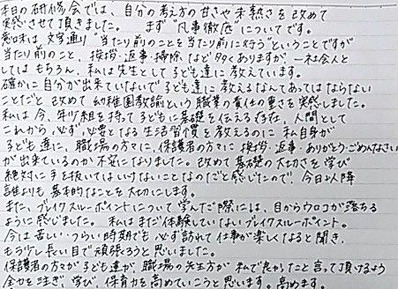 本日の研修会では、自分の考え方の甘さや未熟さを改めて
実感させて頂きました。 まず"凡事徹底"についてです。
意味は文字通り"当たり前のことを当たり前に行う"ということですが
当たり前のこと、挨拶・返事・掃除など多くありますが、一社会人と
してはもちろん、私は先生として子ども達に教えています。
確かに自分が出来ていないで子ども達に教えるなんてあってはならない
ことだと改めて幼稚園教諭という職業の責任の重さを実感しました。
私は今、年少組を持って子どもに基礎を伝える存在、人間として
これから必ず必要となる生活習慣を教えるのに私自身が
子ども達に、職場の方々に、保護者の方々に挨拶・返事・ありがとう・ごめんなさい
が出来ているのか不安になりました。改めて基礎の大切さを学び
絶対に手を抜いてはいけないことなのだと感じたので、今日以降
誰よりも基本的なことを大切にします。
また、ブレイクスルーポイントについて学んだ際には、目からウロコが落ちる
ように感じました。私はまだ体験していないブレイクスルーポイント。
今は苦しい・つらい時期でも必ず訪れて仕事が楽しくなると聞き、
もう少し長い目で頑張ろうと思いました。
保護者の方々が子ども達が、職場の先生方が私で良かったと言って頂けるよう
全力を注ぎ、学び、保育力を高めていこうと思います。高めます。